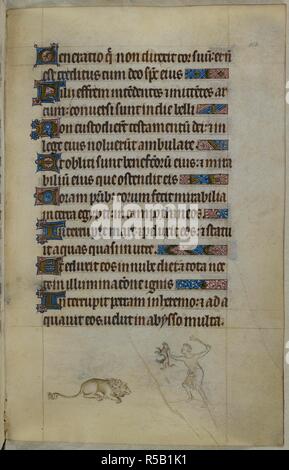 Generatio q̄ non direxit cor suū: et nō
est creditus cum deo sp̄c eius
Filii effrem intēdentes ⁊ mittētes ar
cum: conversi sunt in die belli
Non custodierūt testamentū dei: ⁊ in
lege eius noluerūt ambulare
Et obliti sunt benefcōrū eius: ⁊ mira
biliū eius que ostendit eis
Coram patribȝ eorum fecit mirabilia
in terra egypti: in campo thaneos
Interrupit mare ⁊ perduxit eos: ⁊ statu
it aquas quasi in utre
Et eduxit eos in nube diei: ⁊ tota noc
te in illuminacōne ignis
Interrupit petram in heremo: ⁊ ad a
quavit eos velut in abysso multa.
alamy
R5B1K1